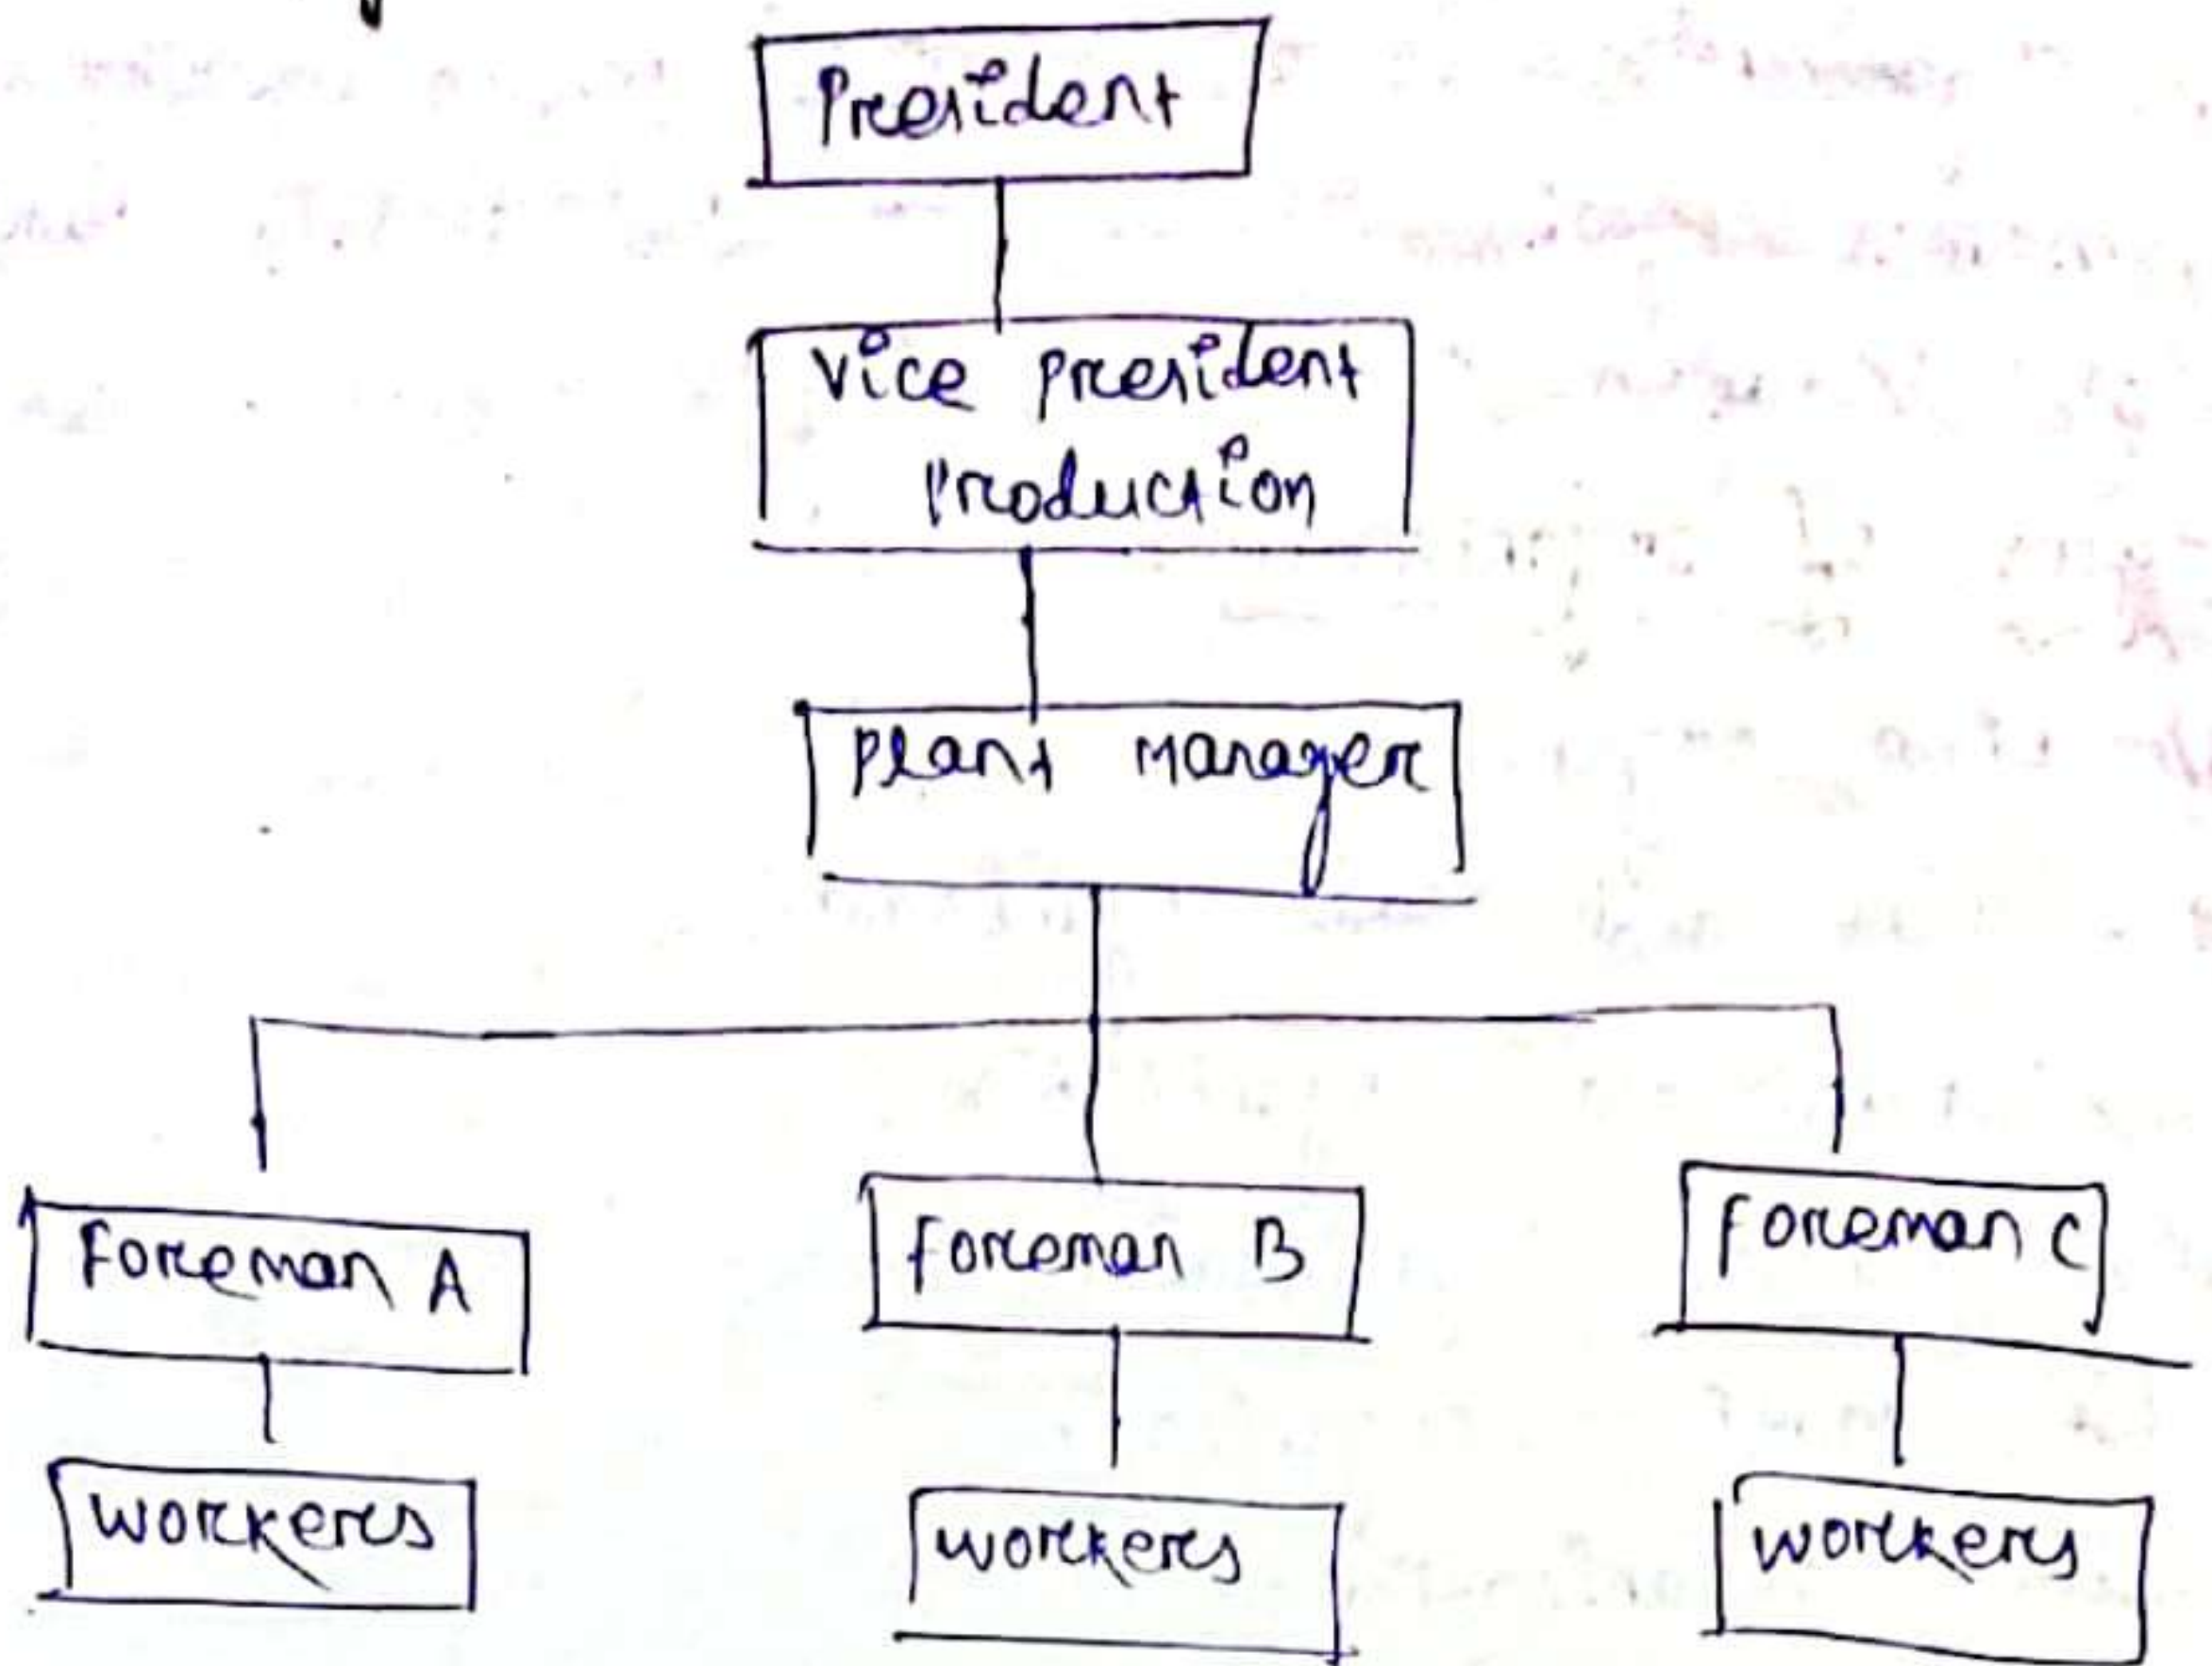 President
Vice president
production
plant Manager
Foreman A
foreman B
foreman C
workers
workers
workers